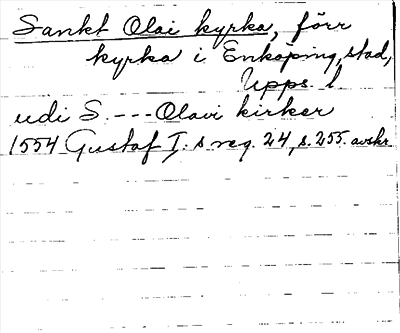 Sankt Olai kyrka, förr
kyrka i Enköping, stad,
Upps. l.
udi S. --- Olavi kirker
1554 Gustaf I:s reg. 24, s. 255. avskr.